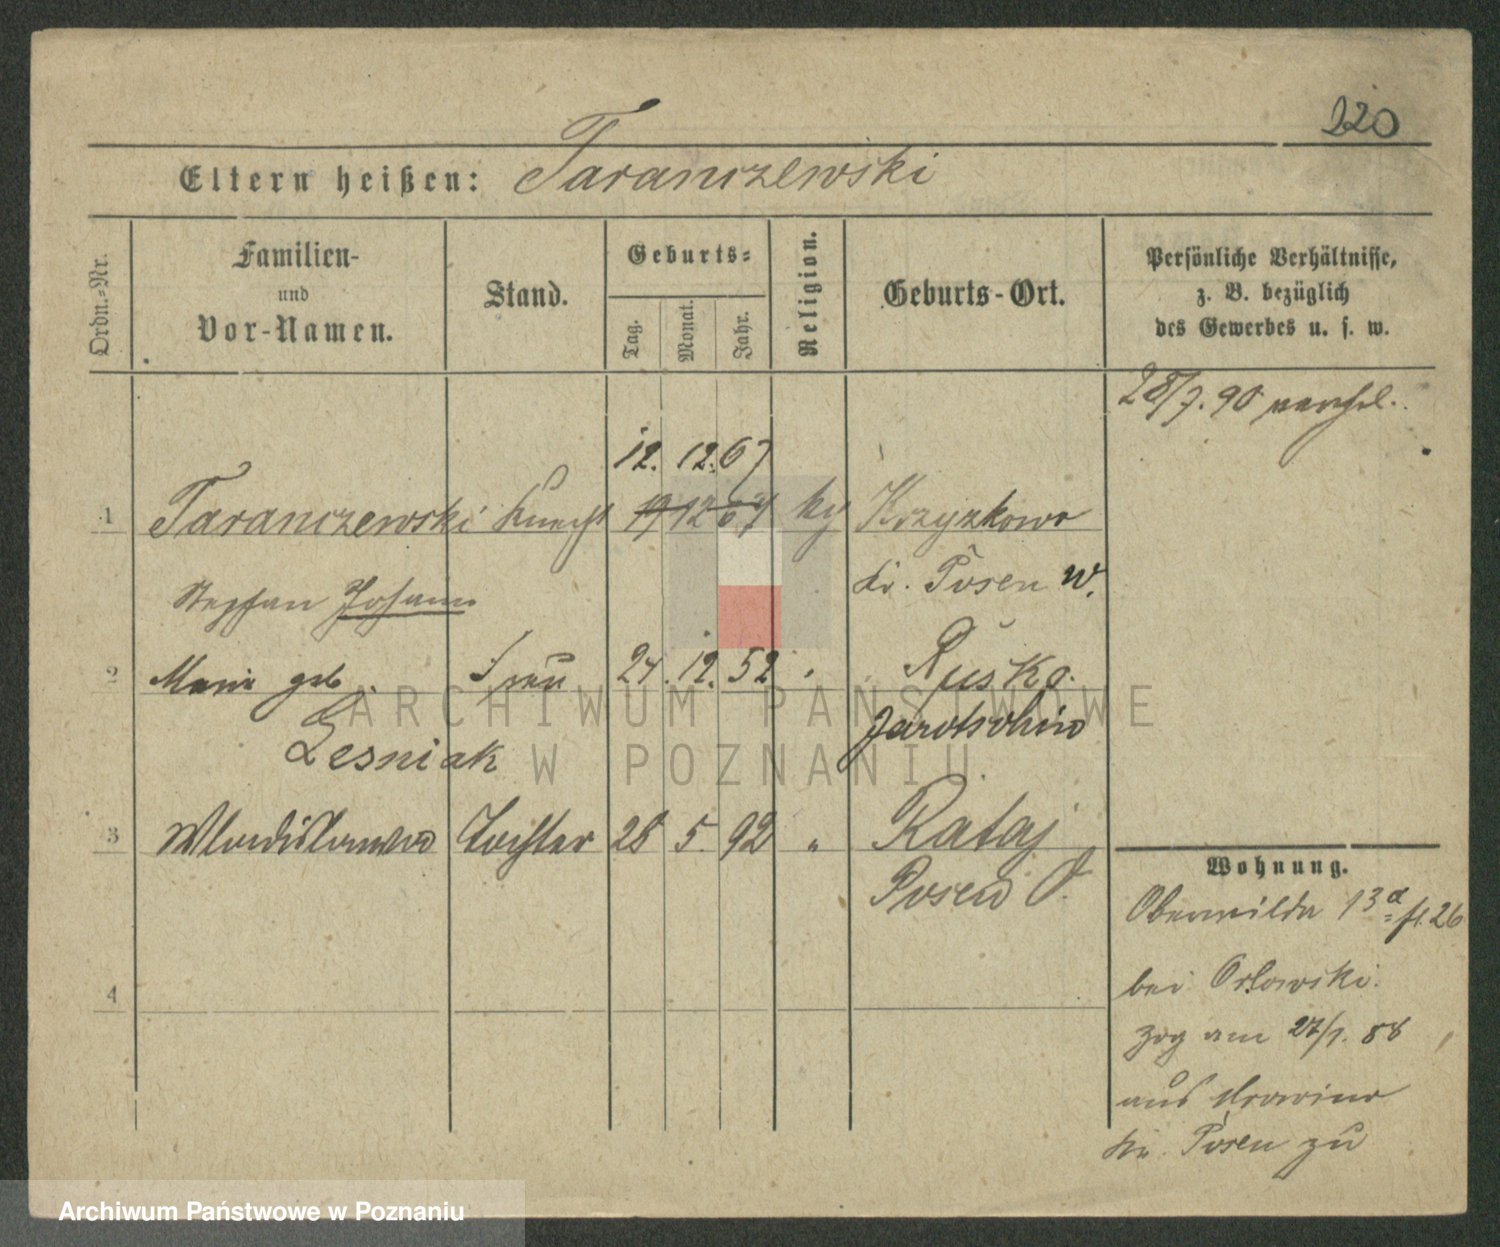 220
Eltern heißen: Taranczewski
Ordn.-Nr.
Familien-
und
Vor-Namen.
Stand.
Geburts-
Tag.
Monat.
Jahr.
Religion.
Geburts-Ort.
Persönliche Verhältnisse,
z. B. bezüglich
des Gewerbes u. s. w.
28/7. 90 verehel.
12. 12. 67
1 Taranczewski Knecht 19 12 67 Krzyzkowo
Stephan Johann Kr. Posen W.
2 Marie geb. Frau 24. 12. 52 Rusko.
Lesniak Jarotschin
3 Wladislawa Tochter 28 5. 92 " Rataj
Posen O.
4
Wohnung.
Oberwilda 13a fl. 26
bei Orlowski.
zog am 27/1. 88
aus
Kr. Posen zu
ARCHIWUM PAŃSTWOWE
W POZNANIU
Archiwum Państwowe w Poznaniu